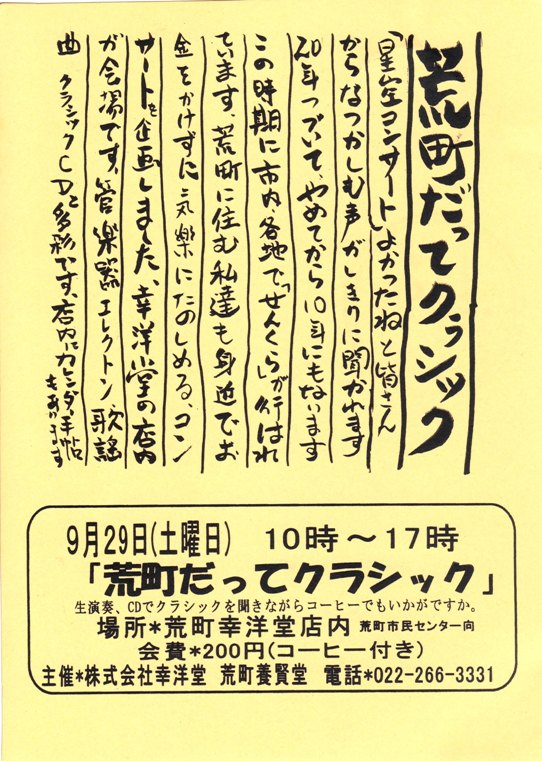 荒町だってクラシック
「星空コンサート」よかったねと皆さん
からなつかしむ声がしきりに聞かれます
20年つづいて、やめてから10年にもないます
この時期に市内各地で「せんくら」が行はれ
ています、荒町に住む私達も身近でお
金をかけずに気楽にたのしめる、コン
サートを企画しました、幸洋堂の店内
が会場です、管楽器 エレクトン 歌謡
曲 クラシックCDと多彩です、店内にカレンダー手帖
もあります
9月29日(土曜日) 10時～17時
「荒町だってクラシック」
生演奏、CDでクラシックを聞きながらコーヒーでもいかがですか。
場所*荒町幸洋堂店内 荒町市民センター向
会費*200円(コーヒー付き)
主催*株式会社幸洋堂 荒町養賢堂 電話*022-266-3331